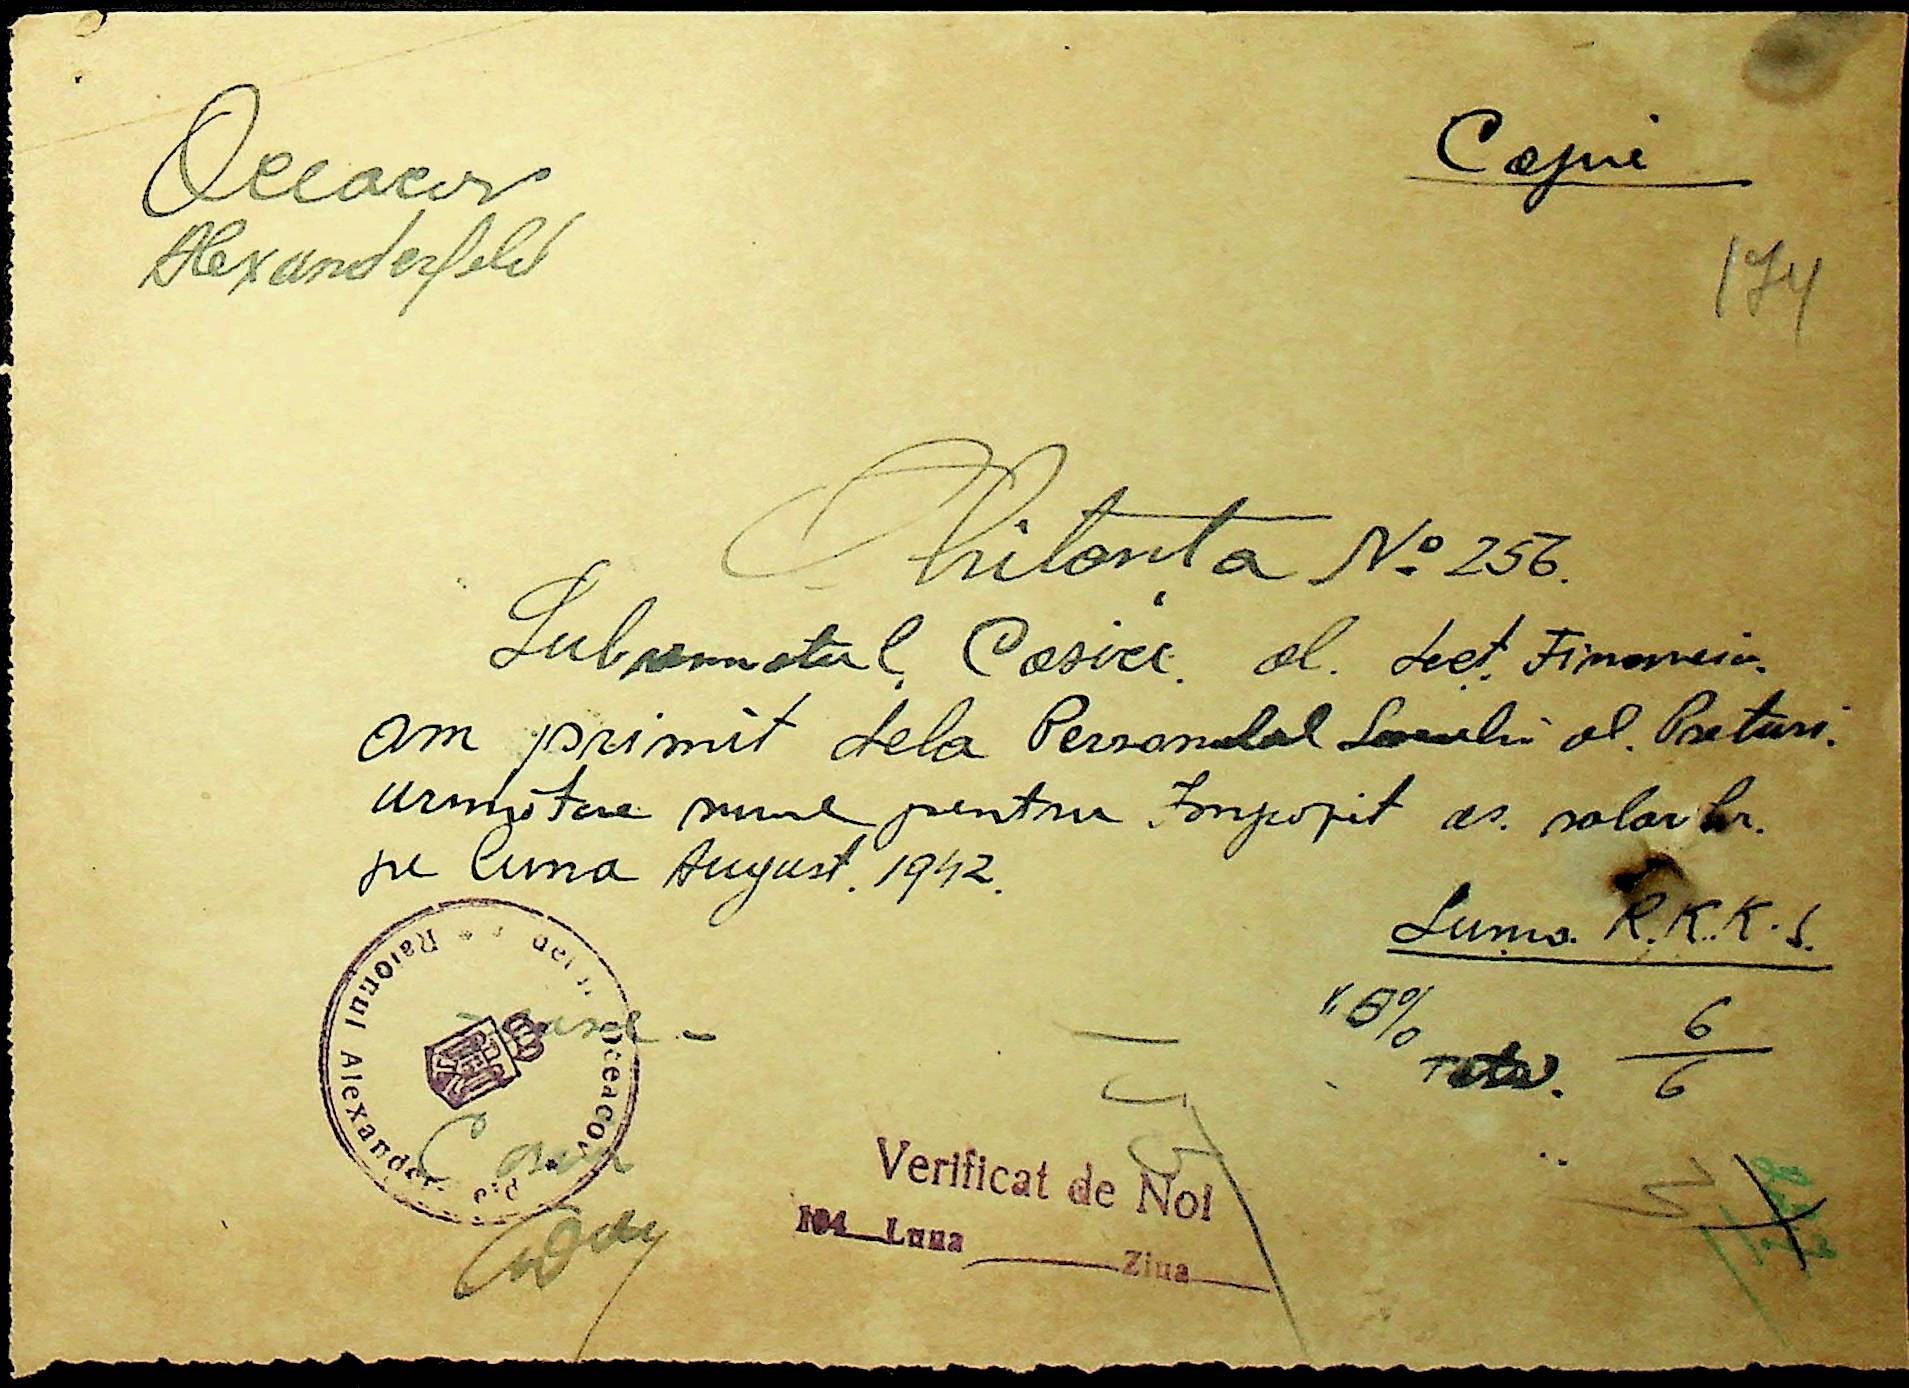 Oceacov
Alexanderfeld
Copie
174
Chitanța No 256.
Subsemnatul, Casier. al. Secț. Financiar.
am primit dela Personalul Sarulii al. Preturi.
urmatoare sume pentru Impozit as. salarilor.
pe luna August. 1942.
Suma. R.K.K.S.
8%
6
Total.
6
Casier
Raionul Alexanderfeld
Oceacov
Verificat de Noi
194 Luna
Ziua